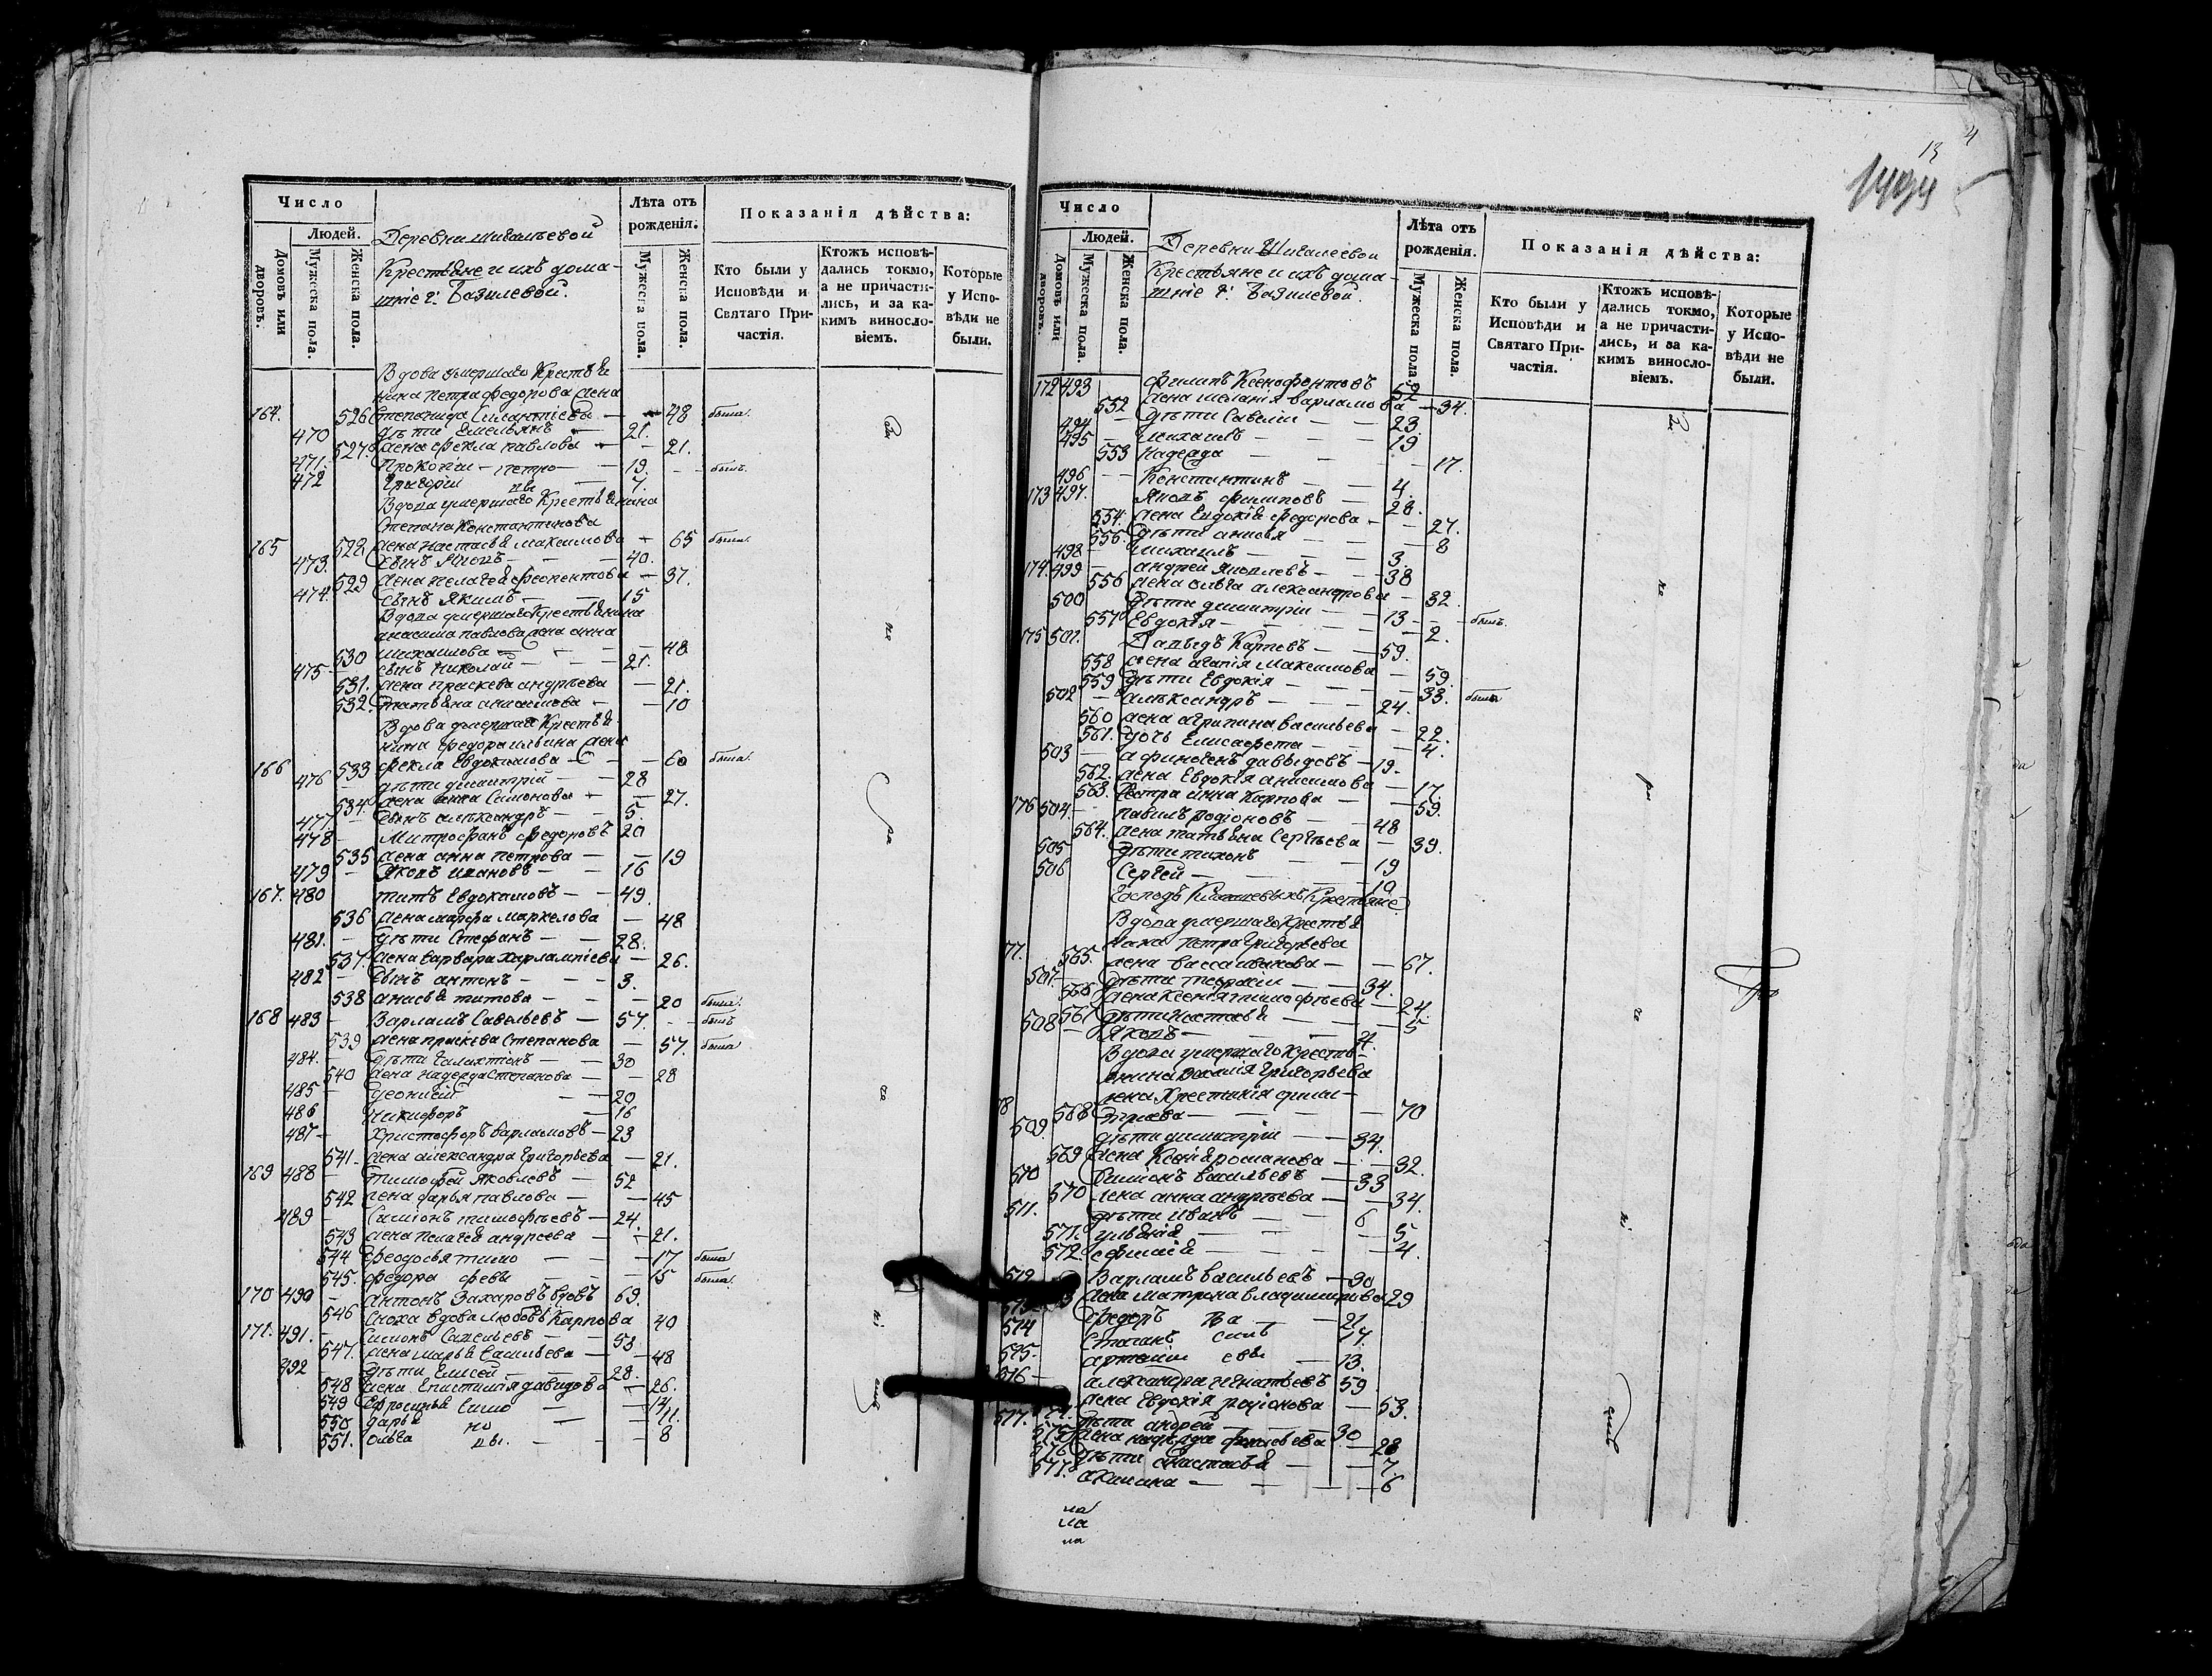 Число
Людей.
Домовъ или дворовъ.
Мужеска пола.
Женска пола.
Деревни Шигалѣевой
Крестьяне и ихъ дома-
шніе г. Базилевой.
Лѣта отъ рожденія.
Мужеска пола.
Женска пола.
Показанія дѣйства:
Кто были у Исповѣди и Святаго При-частія.
Ктожъ исповѣ-дались токмо, а не причасти-лись, и за ка-кимъ винословіемъ.
Которые у Испо-вѣди не были.
Вдова умершаго Крестья
нина Петра Федорова жена
164. 526 Степанида — 48 была
470 дѣти Емельянъ — 21.
527. жена Фекла Павлова — 21.
471. Прокопіи — Петро — 19. былъ
472 Григорій вы — 7.
Вдова умершаго Крестьянина
Степана Константинова
165 528 жена Настасья Максимова — 65 была
473. сынъ Яковъ — 40.
529 жена Пелагея — 37.
474. сынъ Якимъ — 15
Вдова умершаго Крестьянина
Анисима Павлова жена Анна
530 Михаилова — 48
475 сынъ Николай — 21.
531. жена Праскева Андрѣева — 21.
532. Татьяна Анисимова — 10
Вдова умершаго Крестья
нина Федора Ильина жена
166 533 Фекла Евдокимова — 60 была
476 дѣти Димитрій — 28
534 жена Анна Симонова — 27.
477 сынъ Алѣксандръ — 5.
478 Митрофанъ Федоровъ 20
535 жена Анна Петрова — 19
479 Яковъ Ивановъ — 16
167. 480 Титъ Евдокимовъ — 49.
536 жена Марфа Маркелова — 48
481. дѣти Стефанъ — 28.
537. жена Варвара Харлампіева — 26.
482 сынъ Антонъ — 3.
538 Анисья Титова — 20 была
168 483 Варламъ Савельевъ — 57. былъ
539 жена Праскева Степанова — 57. была
484. дѣти Галахтіонъ — 30
540 жена Надежда Степанова — 28
485 Деонисій — 20
486 Никифоръ — 16
487 Христофоръ Варламовъ — 23
541 жена Александра Григорьева — 21.
169 488 Тимофей Яковлевъ — 52
542 жена Дарья Павлова — 45
489 Симіонъ Тимофѣевъ — 24.
543 жена Пелагея Андреева — 21.
544 Феодосья Тимо — 17 была
545. Федора Феевы — 15 была
170 490 Антонъ Захаровъ вдовъ 69.
546 Сноха вдова Любовь Карпова 40
171. 491. Симонъ Савельевъ — 53
547. жена Марья Васильева — 48
492 дѣти Елисей — 28.
548 жена Епистимія Давидова — 26.
549 Ефросинья Симо — 14
550 Дарья но — 11.
551. Ольга вы. — 8
Число
Людей.
Домовъ или дворовъ.
Мужеска пола.
Женска пола.
Деревни Шигалеевой
Крестьяне и ихъ дома-
шніе г. Базилевой.
Лѣта отъ рожденія.
Мужеска пола.
Женска пола.
Показанія дѣйства:
Кто были у Исповѣди и Святаго При-частія.
Ктожъ исповѣ-дались токмо, а не причасти-лись, и за ка-кимъ винословіемъ.
Которые у Испо-вѣди не были.
172 493 Филипъ Ксенофонтовъ 52
552 жена Меланія Варламова — 34.
494 дѣти Савелій — 23.
495 Михаилъ — 19
553 Надежда — 17.
496 Константинъ — 4.
173 497. Яковъ Филиповъ — 28.
554. жена Евдокія Федорова — 27.
555. дѣти Анисья — 8
498 Михаилъ — 3.
174. 499 Андрей Яковлевъ — 38
556 жена Ольга Александрова — 32.
500 дѣти Димитріи — 13 былъ.
557 Евдокія — 2.
175 501. Давыдъ Карповъ — 59.
558 жена Агапія Максимова — 59.
559 дѣти Евдокія — 33. была
502 Алѣксандръ — 24.
560 жена Агрипина Васильева — 22.
561. дочь Елисавета — 4.
503 Афиногенъ Давыдовъ — 19.
562. жена Евдокія Анисимова — 17.
563. Сестра Анна Карпова — 59.
176 504. Павилъ Родіоновъ — 48
564. жена Татьяна Сергѣева — 39.
505 дѣти Тихонъ — 19
506 Сергей — 10
Вдова умершаго Крестья
нина Петра Григорьева
77. 565. жена Васса Иванова — 67.
507. дѣти — 34.
566 жена Ксенія Тимофѣева — 24.
567 дѣти Настасья — 5
508 Яковъ — 4.
Вдова умершаго Кресть-
янина Василія Григорьева
78 568 — 70
509. дѣти Димитріи — 34.
569 жена Ксенія Романова — 32.
510 Симіонъ Васильевъ — 33
570 жена Анна Андрѣева — 34.
511. дѣти Иванъ — 6
571. Ульянія — 5
572. — 4.
512 Варламъ Васильевъ — 30
жена Матрена Владимирова 29
Федоръ Ва — 21
514 Степанъ силь — 17.
515. Артеміи евы — 13.
516 Александра Игнатьевъ 59
жена Евдокія Родіонова — 53.
517. дѣти Андрей — 30
575 жена Надежда — 28
576 дѣти Анастасья — 7.
577. Акилина — 6